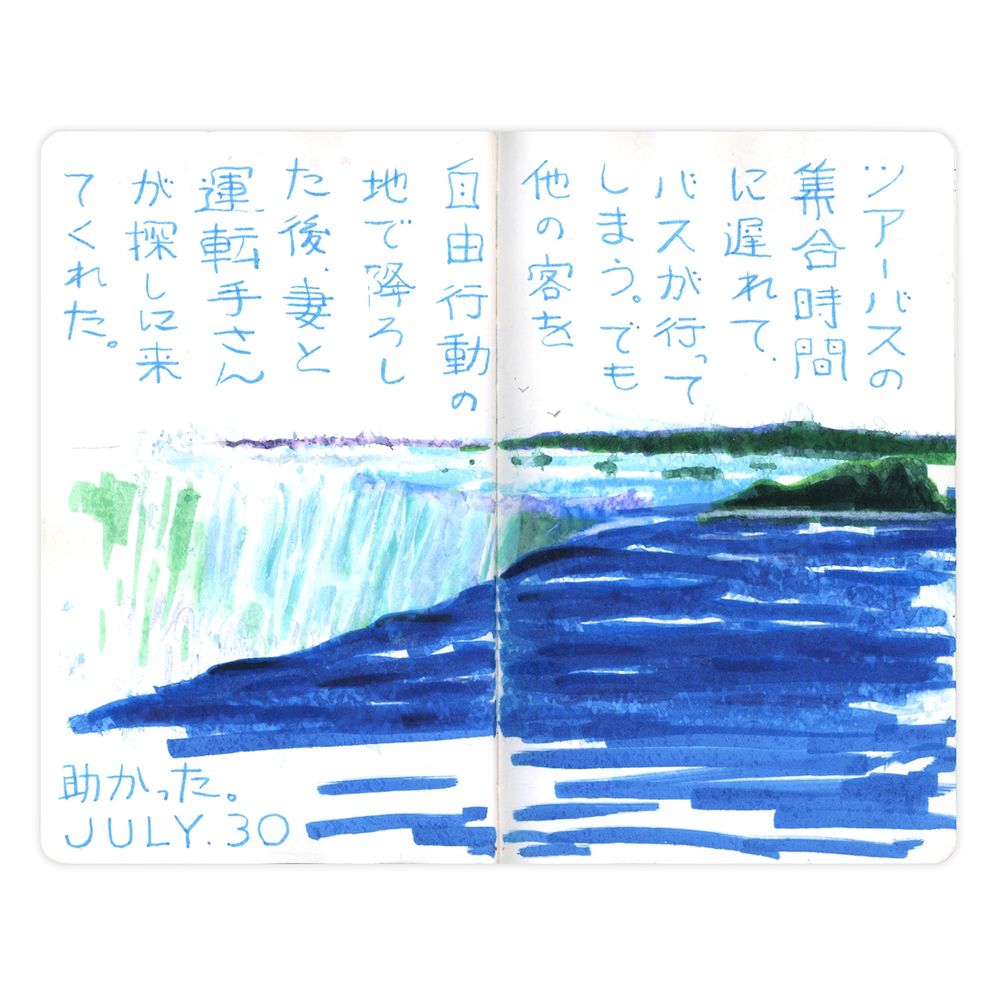 ツアーバスの
集合時間
に遅れて、
バスが行って
しまう。でも
他の客を
自由行動の
地で降ろし
た後、妻と
運転手さん
が探しに来
てくれた。
助かった。
JULY.30